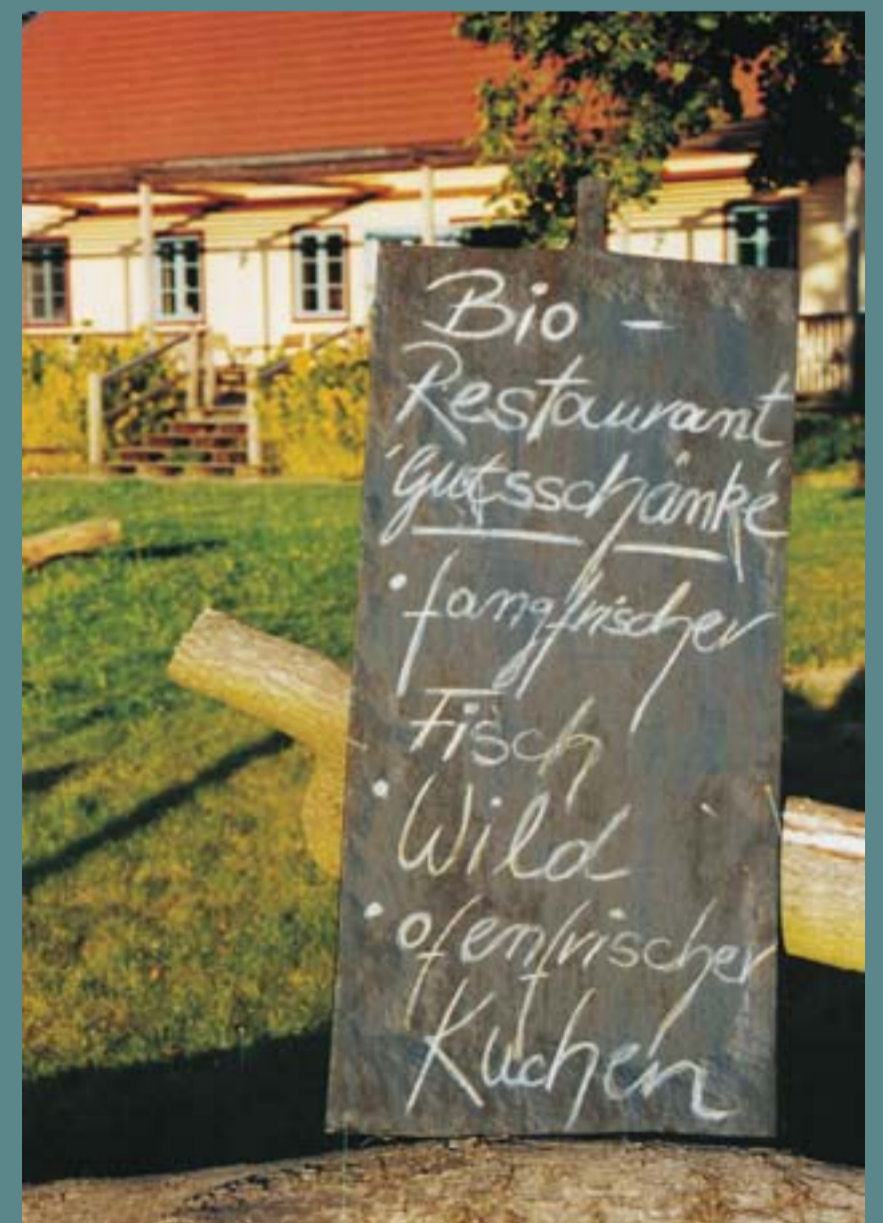 Bio -
Restaurant
'Gutsschänke'
• fangfrischer
Fisch
• Wild
• ofenfrischer
Kuchen